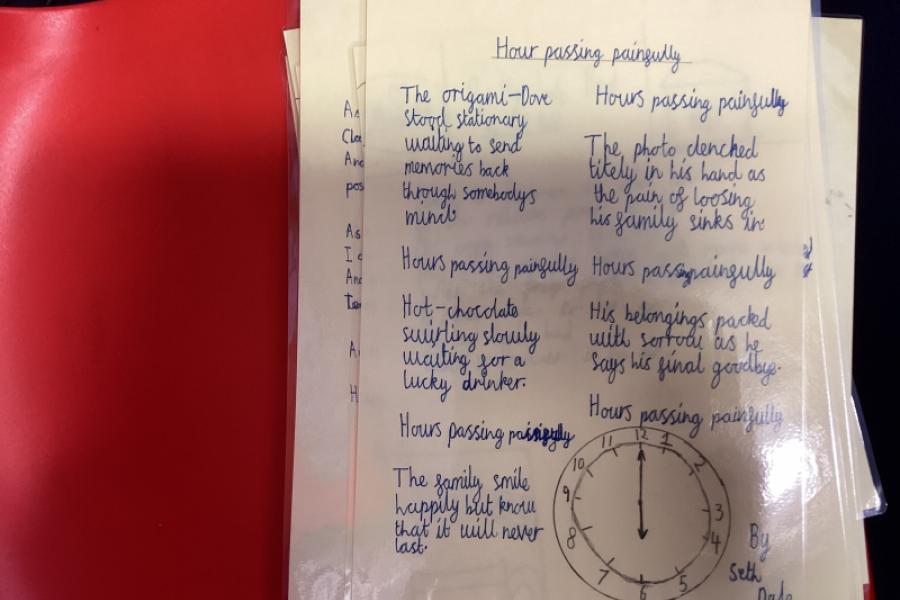 Hour passing painfully
The origami-Dove
stood stationary
waiting to send
memories back
through somebodys
mind.
Hours passing painfully
Hot-chocolate
swirling slowly
waiting for a
lucky drinker.
Hours passing
The family smile
happily but know
that it will never
last.
Hours passing painfully
The photo clenched
titely in his hand as
the pain of loosing
his family sinks in.
Hours passing painfully
His belongings packed
with sorrow as he
says his final goodbye.
Hours passing painfully
12
1
2
3
4
5
6
7
8
9
10
11
By
Seth
As
And
pos
As
I
And
A
H